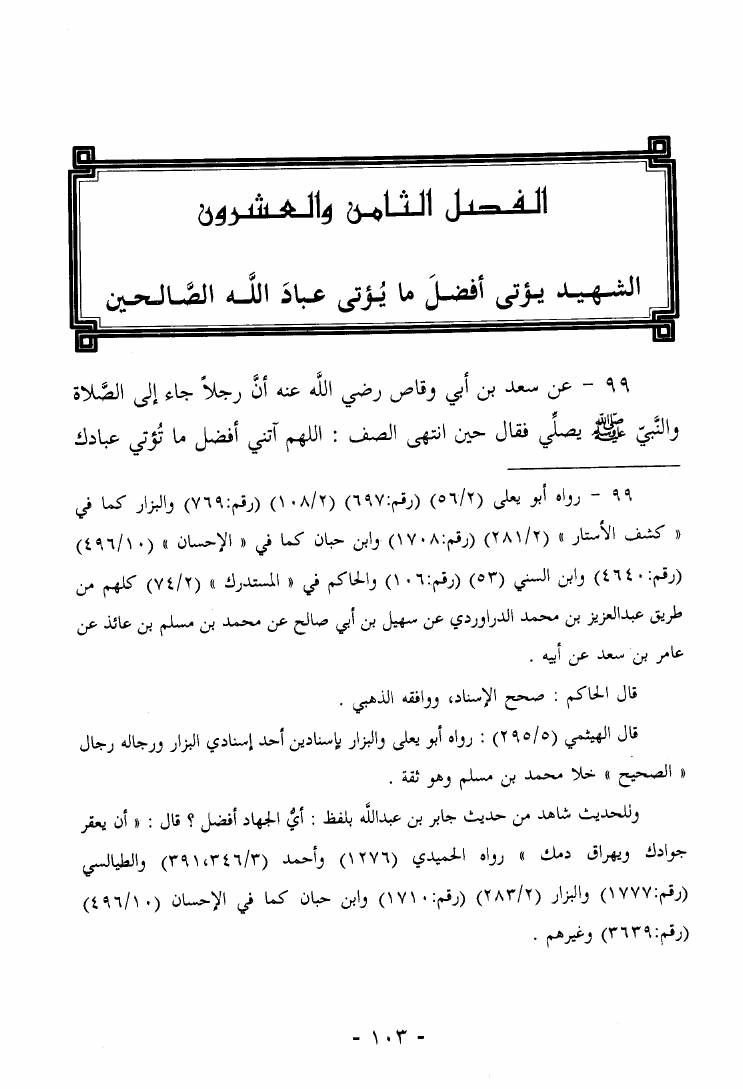 الفصل الثامن والعشرون
الشهيد يؤتى أفضلَ ما يُؤتى عبادَ اللَّه الصَّالحين
٩٩ - عن سعد بن أبي وقاص رضي اللَّه عنه أنَّ رجلاً جاء إلى الصَّلاة
والنَّبيّ ﷺ يصلِّي فقال حين انتهى الصف : اللهم آتني أفضل ما تُؤتي عبادك
٩٩ - رواه أبو يعلى (٥٦/٢) (رقم:٦٩٧) (١٠٨/٢) (رقم:٧٦٩) والبزار كما في
« كشف الأستار » (٢٨١/٢) (رقم:١٧٠٨) وابن حبان كما في « الإحسان » (٤٩٦/١٠)
(رقم:٤٦٤٠) وابن السني (٥٣) (رقم:١٠٦) والحاكم في « المستدرك » (٧٤/٢) كلهم من
طريق عبدالعزيز بن محمد الدراوردي عن سهيل بن أبي صالح عن محمد بن مسلم بن عائذ عن
عامر بن سعد عن أبيه .
قال الحاكم : صحح الإسناد، ووافقه الذهبي .
قال الهيثمي (٢٩٥/٥) : رواه أبو يعلى والبزار بإسنادين أحد إسنادي البزار ورجاله رجال
« الصحيح » خلا محمد بن مسلم وهو ثقة .
وللحديث شاهد من حديث جابر بن عبداللَّه بلفظ : أيُّ الجهاد أفضل ؟ قال : « أن يعقر
جوادك ويهراق دمك » رواه الحميدي (١٢٧٦) وأحمد (٣٩١،٣٤٦/٣) والطيالسي
(رقم:١٧٧٧) والبزار (٢٨٣/٢) (رقم:١٧١٠) وابن حبان كما في الإحسان (٤٩٦/١٠)
(رقم:٣٦٣٩) وغيرهم .
- ١٠٣ -